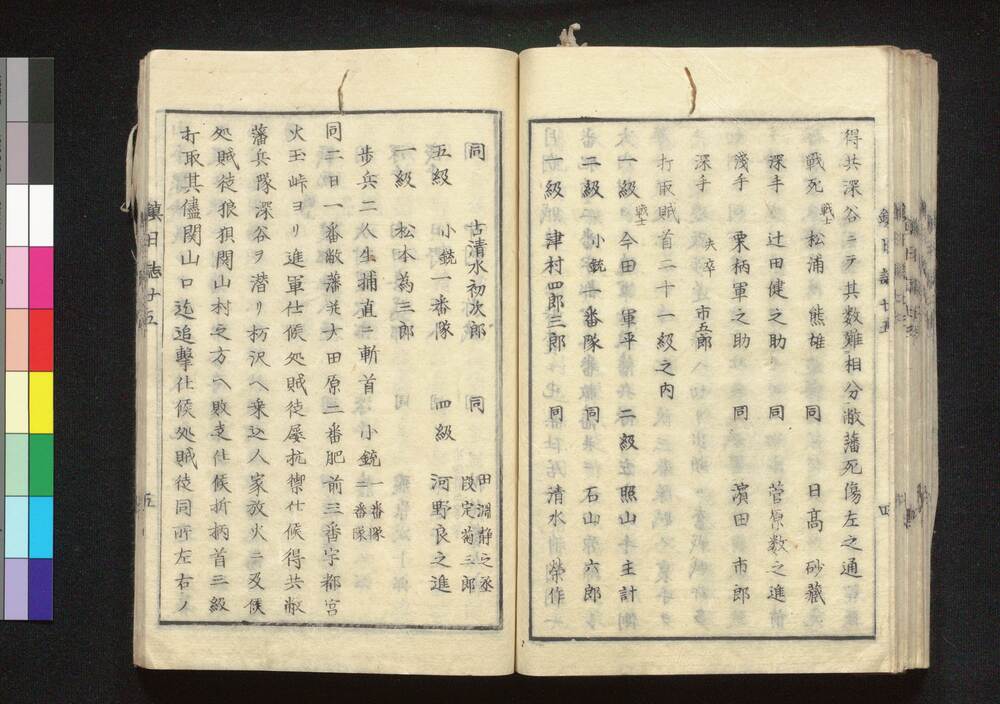 得共深谷ニテ其数難相分敝藩死傷左之通
戦死 戦士 松浦熊雄 同 日高砂藏
深手 辻田健之助 同 菅原数之進
浅手 栗柄軍之助 同 濱田市郎
深手 夫卒 市五郎
打取賊首二十一級之内
一級 戦士 今田軍平 二級 照山主計
二級 小銃二番隊 同 石山源六郎
一級 津村四郎三郎 同 清水榮作
同 古清水初次郎 同 田淵静之丞 段定菊三郎
五級 小銃一番隊 四級 河野良之進
一級 松本為三郎
歩兵二人生捕直ニ斬首 小銃 一番隊 二番隊
同二日一番敝藩并大田原二番肥前三番宇都宮
火玉峠ヨリ進軍仕候処賊徒屡抗禦仕候得共敝
藩兵隊深谷ヲ潜リ栃沢ヘ乗込人家放火ニ及候
処賊徒狼狽関山村之方ヘ敗走仕候折柄首三級
打取其儘関山口迄追撃仕候処賊徒同所左右ノ
鎮日誌十五
四
五